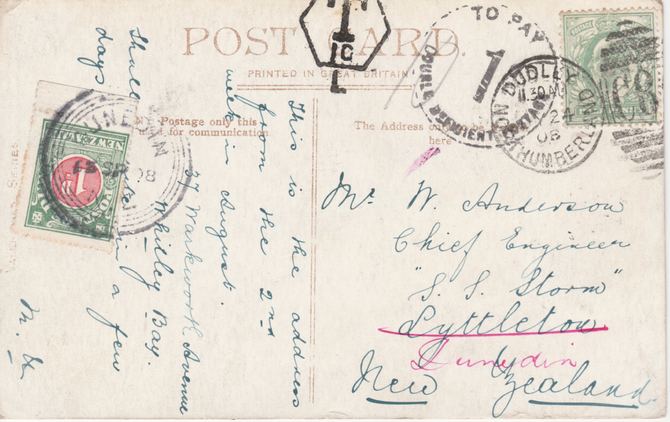 POST CARD.
PRINTED IN GREAT BRITAIN
T
10
L
TO PAY
1
DOUBLE DEFICIENT POSTAGE
DUDLEY
24
08
68
Postage only this
for communication
The Address
here
NEW ZEALAND
1
08
Should
days
in a few
M. H.
This is the address
from the 2nd
week in August.
37 Warkworth Avenue
Whitley Bay.
Mr W. Anderson
Chief Engineer
"S. S. Storm"
Lyttleton
Dunedin
New Zealand.